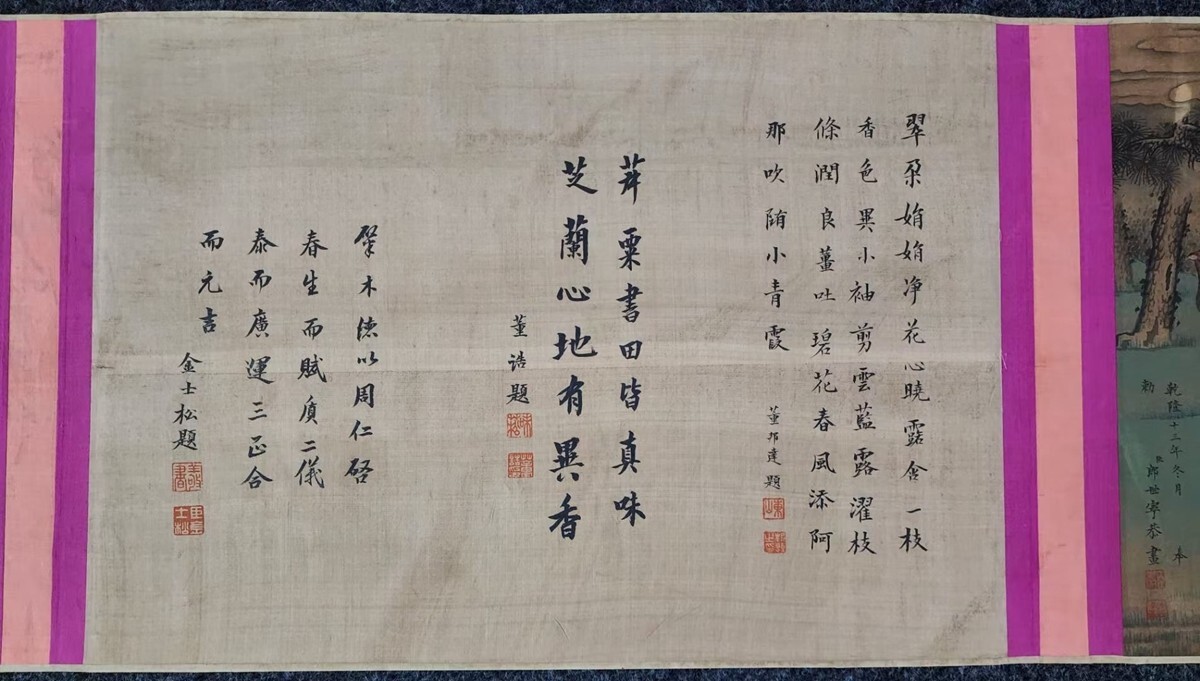 乾隆十三年冬月 奉
勅 臣郎世寧恭畫
翠朶娟娟净花心曉露含一枝
香色異小袖剪雲藍露濯枝
條潤良薑吐碧花春風添阿
那吹陏小青霞
董邦達題
粟書田皆真味
芝蘭心地有異香
董誥題
肇木德以周仁啓
春生而賦質二儀
泰而廣運三正合
而元吉
金士松題